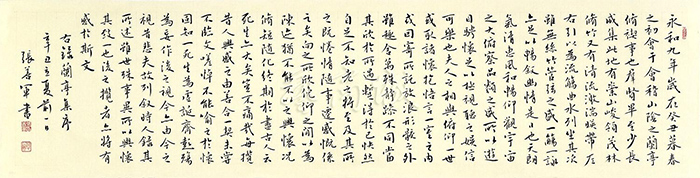 永和九年歲在癸丑暮春
之初會于會稽山陰之蘭亭
脩禊事也羣賢畢至少長
咸集此地有崇山峻領茂林
脩竹又有清流激湍暎帶左
右引以為流觴曲水列坐其次
雖無絲竹管弦之盛一觴一詠
亦足以暢叙幽情是日也天朗
氣清惠風和暢仰觀宇宙
之大俯察品類之盛所以遊
目騁懷足以極視聽之娛信
可樂也夫人之相與俯仰一世
或取諸懷抱悟言一室之內
或因寄所託放浪形骸之外
雖趣舍萬殊靜躁不同當
其欣於所遇暫得於己快然
自足不知老之將至及其所
之既惓情隨事遷感慨係
之矣向之所欣俛仰之間以為
陳迹猶不能不以之興懷況
脩短隨化終期於盡古人云
死生亦大矣豈不痛哉每攬
昔人興感之由若合一契未嘗
不臨文嗟悼不能喻之於懷
固知一死生為虛誕齊彭殤
為妄作後之視今亦由今之
視昔悲夫故列叙時人錄其
所述雖世殊事異所以興懷
其致一也後之攬者亦將有
感於斯文
右錄蘭亭集序
辛丑立夏前一日
張善軍書